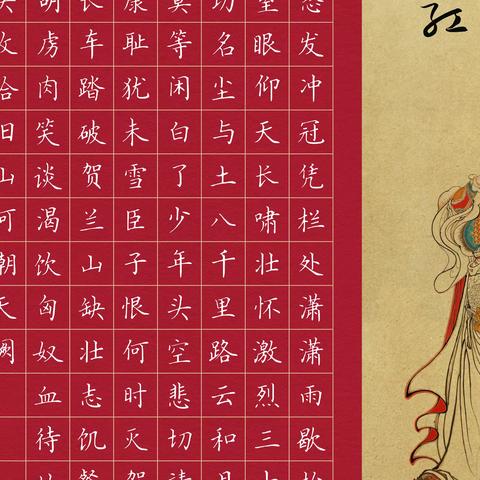 红
发冲冠凭栏处潇潇雨歇
眼仰天长啸壮怀激烈三十
功名尘与土八千里路云和月
莫等闲白了少年头空悲切
康耻犹未雪臣子恨何时灭驾
长车踏破贺兰山缺壮志饥餐
虏肉笑谈渴饮匈奴血待
收拾旧山河朝天阙